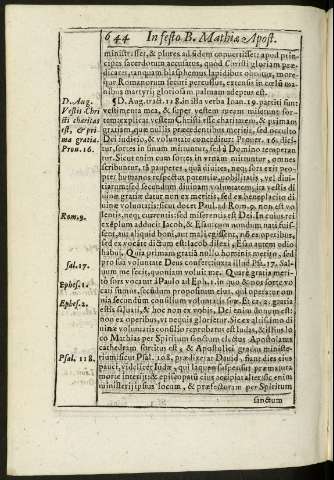 644 In festo B. Mathiæ Apost.
ministrasset, & plures ad fidem convertisset: apud prin-
cipes sacerdotum accusatus, quod Christi gloriam præ-
dicaret, tanquam blasphemus lapidibus obruitur, more-
que Romanorum securi percussus, extensis in cœlũ ma-
nibus martyrij gloriosam palmam adeptus est.
D. Aug.
Vestis Chri
sti charitas
est, & pri
ma gratia.
Prou. 16.
¶ D. Aug. tract. 118. in illa verba Ioan. 19. partiti sunt
vestimenta mea, & super vestem meam miserunt for-
tem: explicat vestem Christi esse charitatem, & primam
gratiam, quæ nullis præcedentibus meritis, sed occulto
Dei iudicio, & voluntate conceditur: Prouer. 16. dici-
tur, sortes in sinum mittuntur, sed à Domino temperan
tur. Sicut enim cum sortes in vrnam mittuntur, omnes
scribuntur, tã pauperes, quã diuites, neq; sors exit pro-
pter humanos respectus potentiæ, nobilitatis, vel diui-
tiarum: sed secundum diuinam voluntatem, ita vestis di
uinæ gratiæ datur non ex meritis, sed ex beneplacito di
Rom. 9.
uinæ voluntatis: sicut docet Paul. ad Rom. 9. non est vo
lentis, neq; currentis: sed miserentis est Dei. In cuius rei
exẽplum adducit Iacob, & Esau: cum nondum nati fuis-
sent, aut aliquid boni, aut mali egissent, nõ ex operibus,
sed ex vocãte dictum est: Iacob dilexi, Esau autem odio
habui. Quia primam gratiã nullo hominis merito, sed
Sal. 17.
pro sola voluntate Deus confert, iuxta illud Psa. 17. Sal-
uum me fecit, quoniam voluit me. Quare gratiã meri-
Ephes. 1.
tò sors vocant à Paulo ad Eph. 1. in quo & nos sorte vo-
cati sumus, secundum propositum eius, qui operatur om
Ephes. 2.
nia secundum consilium voluntatis suæ. Et ca. 2. gratia
estis saluati, & hoc non ex vobis, Dei enim donum est:
non ex operibus, vt nequis glorietur. Sic ex altissimo di
uinæ voluntatis consilio reprobatus est Iudas, & illius lo
co Mathias per Spiritum sanctum electus. Apostolatus
cathedram sortitus est, & Apostolici gradus ministe-
Psal. 118.
rium: sicut Psal. 108. prædixerat Dauid, fiant dies eius
pauci, videlicet Iudæ, qui laqueo suspensus præmatura
morte interijt: & episcopatũ eius accipiat alter: sic enim
ministerij ipsius locum, & præfecturam per Spiritum
sanctum